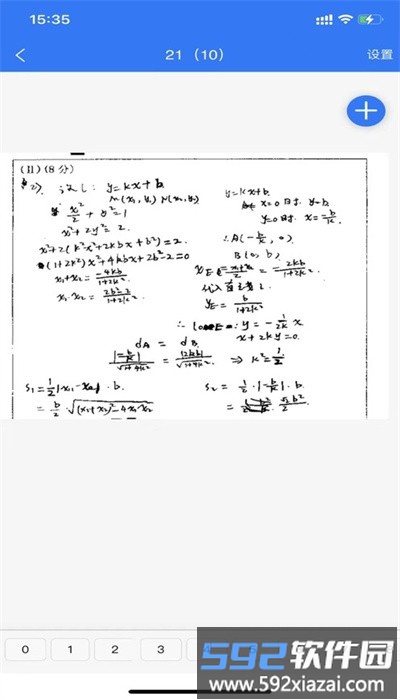 15:35
21 (10)
设置
(II)(8分)
(2). 设l: y=kx+b
M(x₁, y₁) N(x₂, y₂)
x²/2 + y²=1
x²+2y²=2.
x²+2(k²x²+2kbx+b²)=2.
(1+2k²)x²+4kbx+2b²-2=0
x₁+x₂=-4kb/1+2k².
x₁·x₂=2b²-2/1+2k².
y=kx+b.
x=0时. y=b.
y=0时. x=-b/k.
∴A(-b/k, 0).
B(0, b).
yE=b/1+2k²
y=-1/2k x
x+2ky=0.
dA = dB.
⇒ k²=1/2
S₁=1/2|x₁-x₂|·b.
=b/2·√(x₁+x₂)²-4x₁x₂
S₂=1/2·|-b/k|·b.
0
1
2
3
4
592软件园
www.592xiazai.com